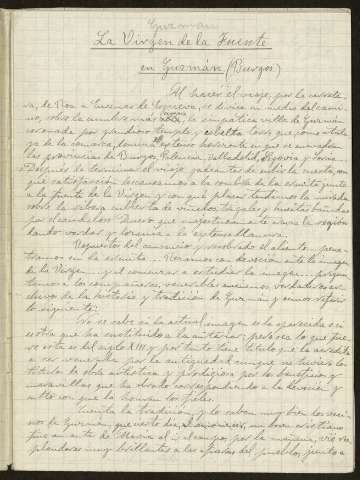 Guzmán
La Virgen de la Fuente
en Guzmán (Burgos)
Al hacer el viaje, por la carrete-
ra, de Roa a Encinas de Esgueva, se divisa en medio del cami-
no, sobre la cumbre más la simpática villa de Guzmán
coronada por grandioso templo y esbelta torre que como atala-
ya de la comarca, domina extenso horizonte en que se encuadran
las provincias de Burgos, Palencia, Valladolid, Segovia y Soria.
Después de terminar el viaje jadeantes de subir la cuesta, con
qué satisfacción descansamos a la sombra de la ermita junto
a la fuente de la Virgen y con qué placer tendemos la mirada
sobre la cubierta de viñedos, trigales y huertas bañadas
por el caudaloso Duero que majestuosamente la región
dando vardas y lozanía a la extensa llanura.
Repuestos del cansancio y recobrado el aliento, pene-
tramos en la ermita. Oramos con devoción ante la imagen
de la Virgen y al comenzar a estudiar la imagen
tamos a los compañeros, venerables ancianos verdaderos ar-
chivos de la historia y tradición de Guzmán y emos referir
lo siguiente:
No se sabe si la actual imagen es la aparecida o es
otra que ha sustituido a la anterior, pero sea lo que fue-
re esta es del siglo XIII y por tanto tiene título que la acredita
a ser venerada por su antigüedad aunque no tuviera los
títulos de obra artística y prodigiosa por los beneficios y
maravillas que ha obrado correspondiendo a la devoción y
culto con que la honran los fieles.
Cuenta la tradición, y lo saben muy bien los veci-
nos de Guzmán, que cierto día, al anochecer, un buen cristiano
fiel amante de María al ir al campo por la mañana, vio res-
plandores muy brillantes a las afueras del pueblo, junto a